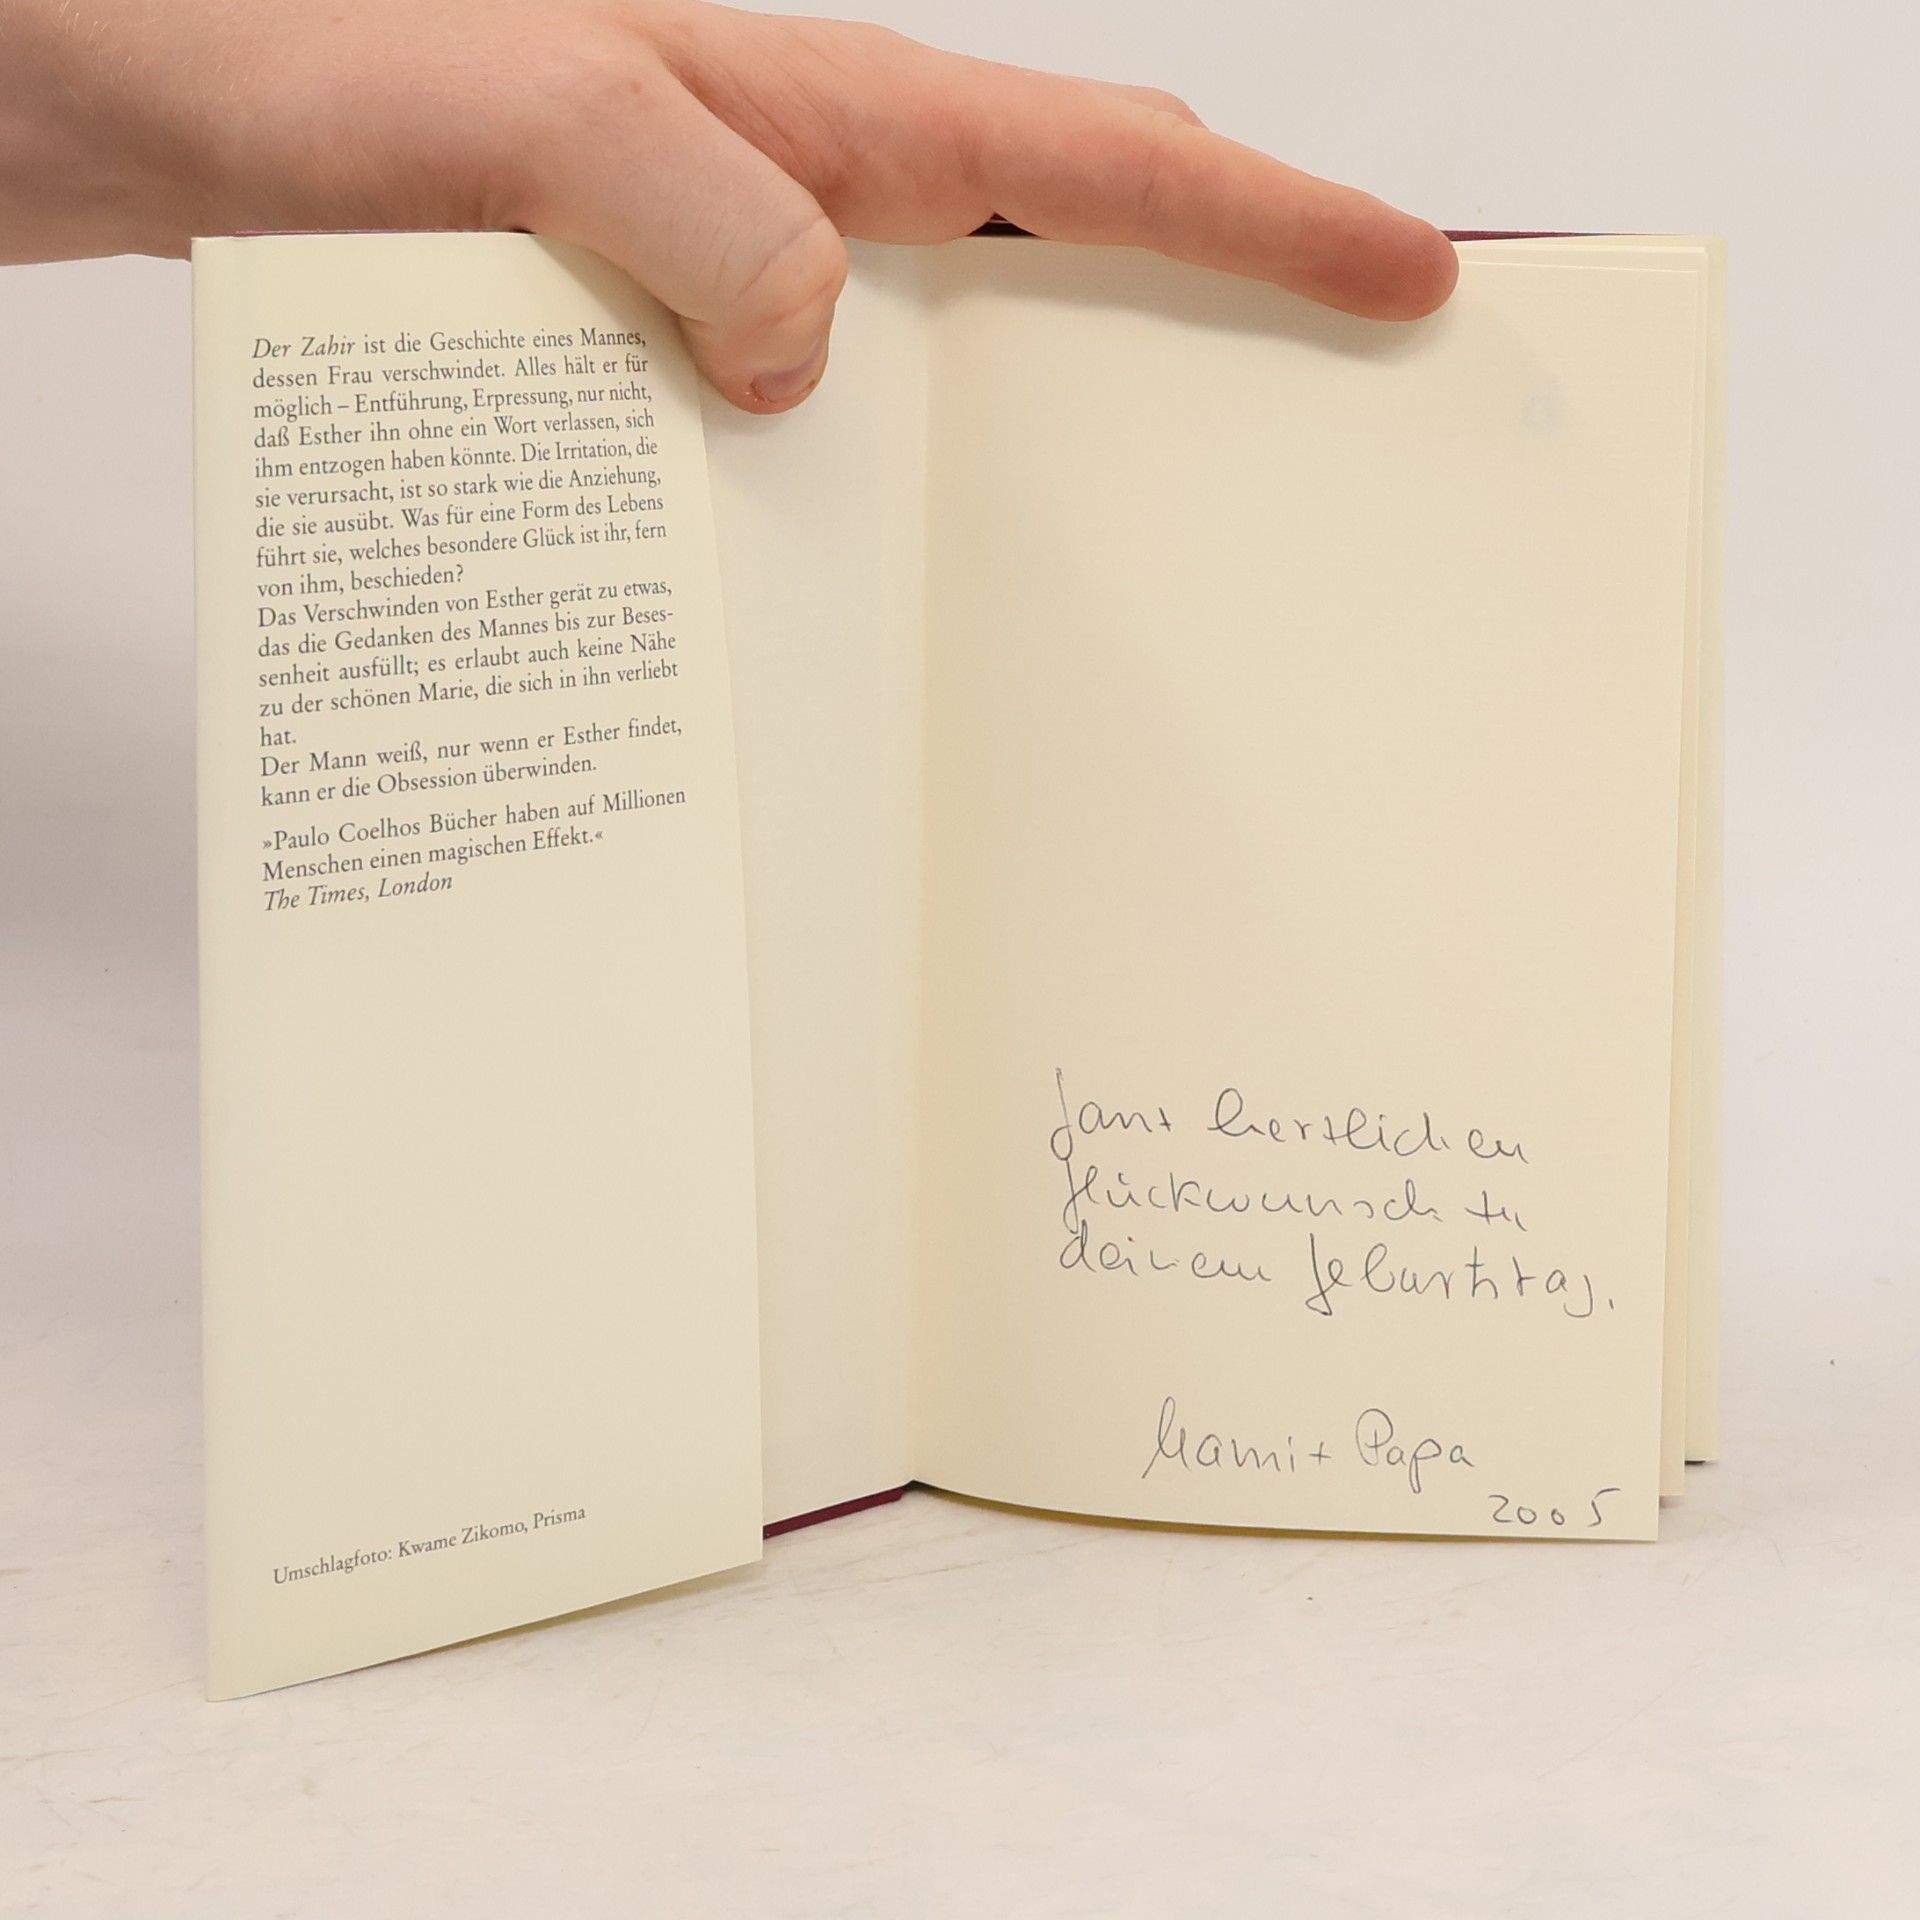 Der Zahir ist die Geschichte eines Mannes,
dessen Frau verschwindet. Alles hält er für
möglich – Entführung, Erpressung, nur nicht,
daß Esther ihn ohne ein Wort verlassen, sich
ihm entzogen haben könnte. Die Irritation, die
sie verursacht, ist so stark wie die Anziehung,
die sie ausübt. Was für eine Form des Lebens
führt sie, welches besondere Glück ist ihr, fern
von ihm, beschieden?
Das Verschwinden von Esther gerät zu etwas,
das die Gedanken des Mannes bis zur Beses-
senheit ausfüllt; es erlaubt auch keine Nähe
zu der schönen Marie, die sich in ihn verliebt
hat.
Der Mann weiß, nur wenn er Esther findet,
kann er die Obsession überwinden.
»Paulo Coelhos Bücher haben auf Millionen
Menschen einen magischen Effekt.«
The Times, London
Umschlagfoto: Kwame Zikomo, Prisma
Ganz herzlichen
Glückwunsch zu
deinem Geburtstag.
Mami + Papa
2005